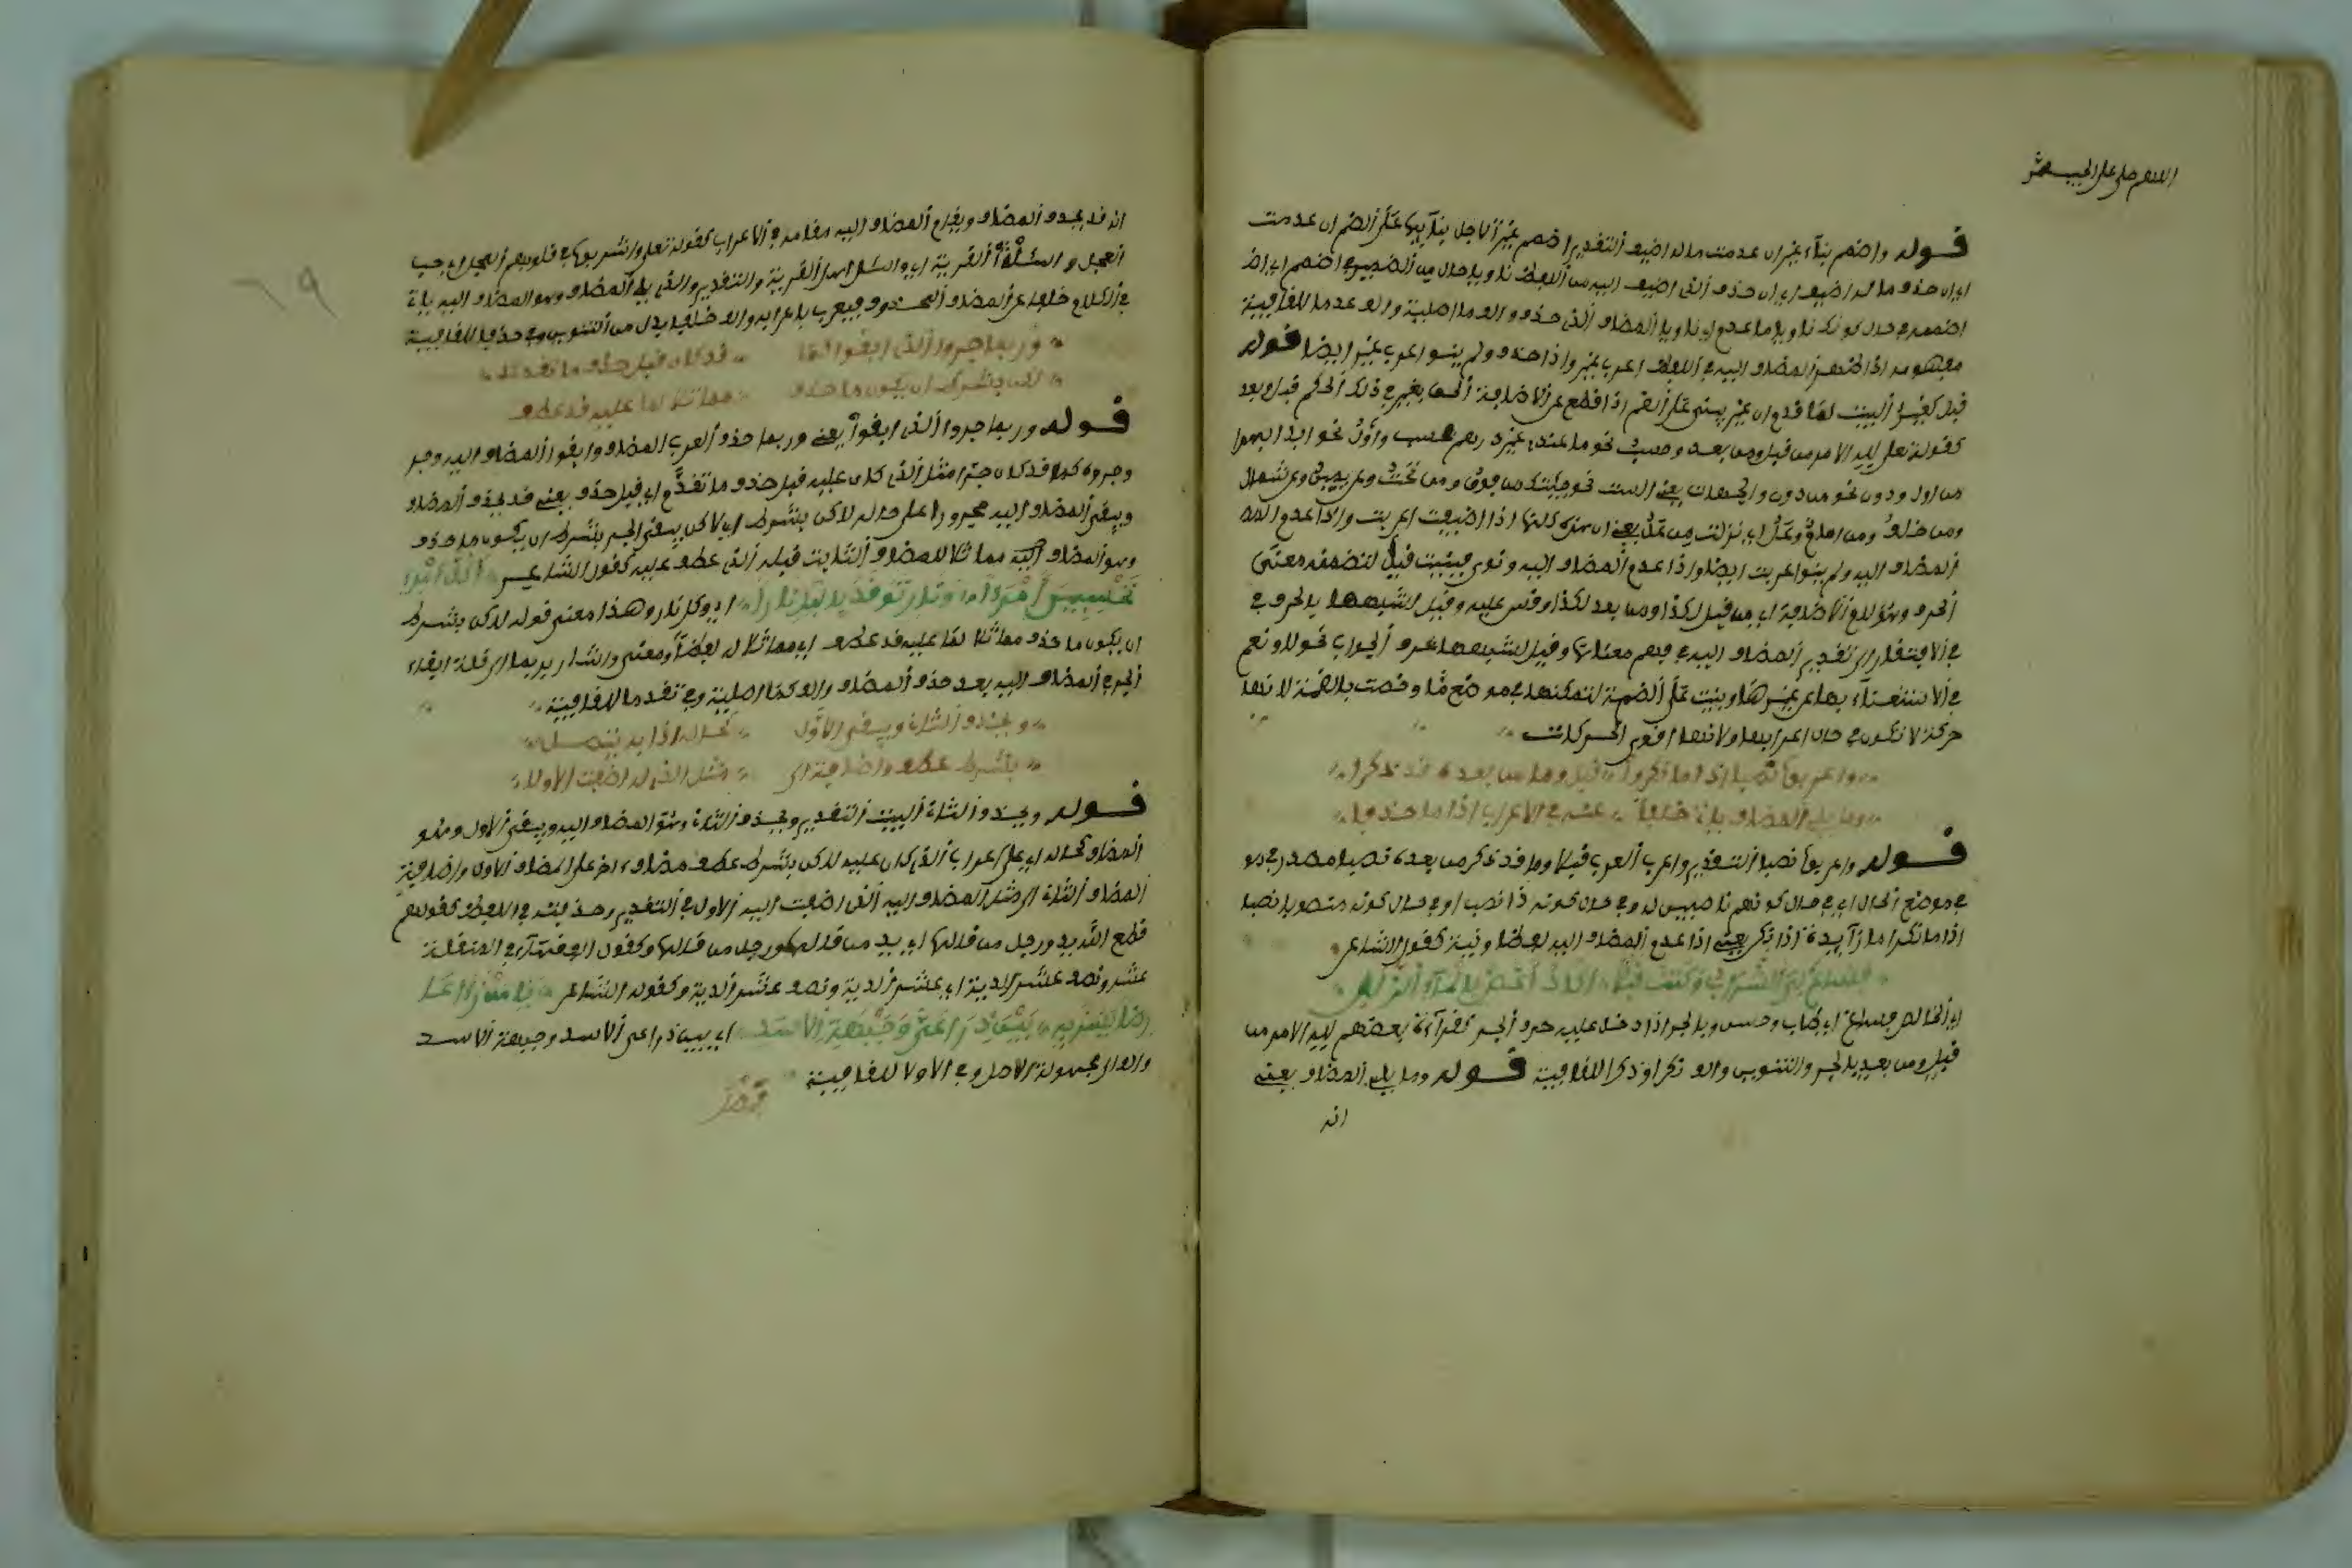 اللهم صل على الحبيب
قوله واضمم بناء غيرا ان عدمت ما له اضيف التقدير اضمم غيرا لاجل بنائها على الضم ان عدمت
اي ان حذف ما له اضيف اي ان حذف الذي اضيف اليه من اللفظ ناويا حال من الضمير في اضمم اي اض
اضممه في حال كونك ناويا ما عدم اي ناويا المضاف الذي حذف والف ما اصلية والف عدما للقافية
مفهومه اذا ظهر المضاف اليه في اللفظ اعرب غير واذا حذف ولم ينو اعرب غير ايضا قوله
قبل كغير البيت لما قدم ان غير يبنى على الضم اذا قطع عن الاضافة الحق بغير في ذلك الحكم قبل وبعد
كقوله تعلى لله الامر من قبل ومن بعد وحسب نحو ما عندي غيره رهم فحسب واول نحو ابدا بهذا
من اول ودون نحو من دون والجهات يعني الست نحو جئتك من فوق ومن تحت وعن يمين وعن شمال
ومن خلف ومن امام وعل اي نزلت من عل يعني ان هذه كلها اذا اضيفت اعربت واذا عدم
المضاف اليه ولم ينو اعربت ايضا واذا عدم المضاف اليه ونوي فبنيت قيل لتضمنه معنى
الحرف وهو لام الاضافة اي من قبل لكذا ومن بعد لكذا وقس عليه وقيل لشبهها بالحرف في
في الافتقار الى تقدير المضاف اليه في فهم معناها وقيل لشبهها بحرف الجواب نحو لا ونعم
في الاستغناء بها عن غيرها وبنيت على الضمة لتمكنها في موضع ما وخصت بالضمة لانها
حركة لا تكون في حال اعرابها ولانها اقوى الحركات
واعربوا نصبا اذا ما نكرا قبلا وما من بعده قد ذكرا
وما يلي المضاف يات خلفا عنه في الاعراب اذا ما حذفا
قوله واعربوا نصبا التقدير واعرب العرب قبلا وما قد ذكر من بعده نصبا مصدر في مو
في موضع الحال اي في حال كونهم ناصبين له وفي حال كونه ذا نصب او في حال كونه منصوبا نصبا
اذا ما نكرا ما زائدة اذا نكر يعني اذا عدم المضاف اليه لفظا ونية كقول الشاعر
فساغ لي الشراب وكنت قبلا اكاد اغص بالماء الزلال
اي الخالص فساغ اي طاب وحسن وبالجر اذا دخل عليه حرف الجر كقراءة بعضهم لله الامر من
قبل ومن بعد بالجر والتنوين والف نكرا وذكرا للقافية قوله وما يلي المضاف يعني
انه
٦٩
انه قد يحذف المضاف ويقام المضاف اليه مقامه في الاعراب كقوله تعلى واشربوا في قلوبهم العجل اي حب
العجل واسئل القرية اي واسئل اهل القرية والتقدير والذي يلي المضاف وهو المضاف اليه يات
في الكلام خلفا عن المضاف المحذوف فيعرب باعرابه والف خلفا بدل من التنوين وفي حذفا للقافية
وربما جروا الذي ابقوا كما قد كان قبل حذف ما تقدما
لكن بشرط ان يكون ما حذف مماثلا لما عليه قد عطف
قوله وربما جروا الذي ابقوا يعني وربما حذف العرب المضاف وابقوا المضاف اليه وجر
وجروه كما قد كان جرا مثل الذي كان عليه قبل حذف ما تقدم اي قبل حذف يعني قد يحذف المضاف
ويبقى المضاف اليه مجرورا على حاله لاكن بشرط اي لاكن يبقى الجر بشرط ان يكون ما حذف
وهو المضاف اليه مماثلا للمضاف الثابت قبله الذي عطف عليه كقول الشاعر اكل امرئ
تحسبين امرءا ونار توقد بالليل نارا اي وكل نار وهذا معنى قوله لاكن بشرط
ان يكون ما حذف مماثلا لما عليه قد عطف اي مماثلا له لفظا ومعنى واشار بربما الى قلة ابقاء
الجر في المضاف اليه بعد حذف المضاف والف كما اصلية وفي تقدما للقافية
ويحذف الثان ويبقى الاول كحاله اذا به يتصل
بشرط عطف واضافة الى مثل الذي له اضفت الاولا
قوله ويحذف الثان البيت التقدير ويحذف الثان وهو المضاف اليه ويبقى الاول وهو
المضاف كحاله اي على اعرابه الذي كان عليه لاكن بشرط عطف مضاف ءاخر على المضاف الاول واضافة
المضاف الثان الى مثل المضاف اليه الذي اضفت اليه الاول في التقدير وحذفته في اللفظ كقولهم
قطع الله يد ورجل من قالها اي يد من قالها ورجل من قالها وكقول الفقهاء في المنقلة
عشر ونصف عشر الدية اي عشر الدية ونصف عشر الدية وكقوله الشاعر يا من رأى عا
رضا يسر به بين ذراعي وجبهة الاسد اي بين ذراعي الاسد وجبهة الاسد
والف الى مجهولة الاصل وفي الاولا للقافية